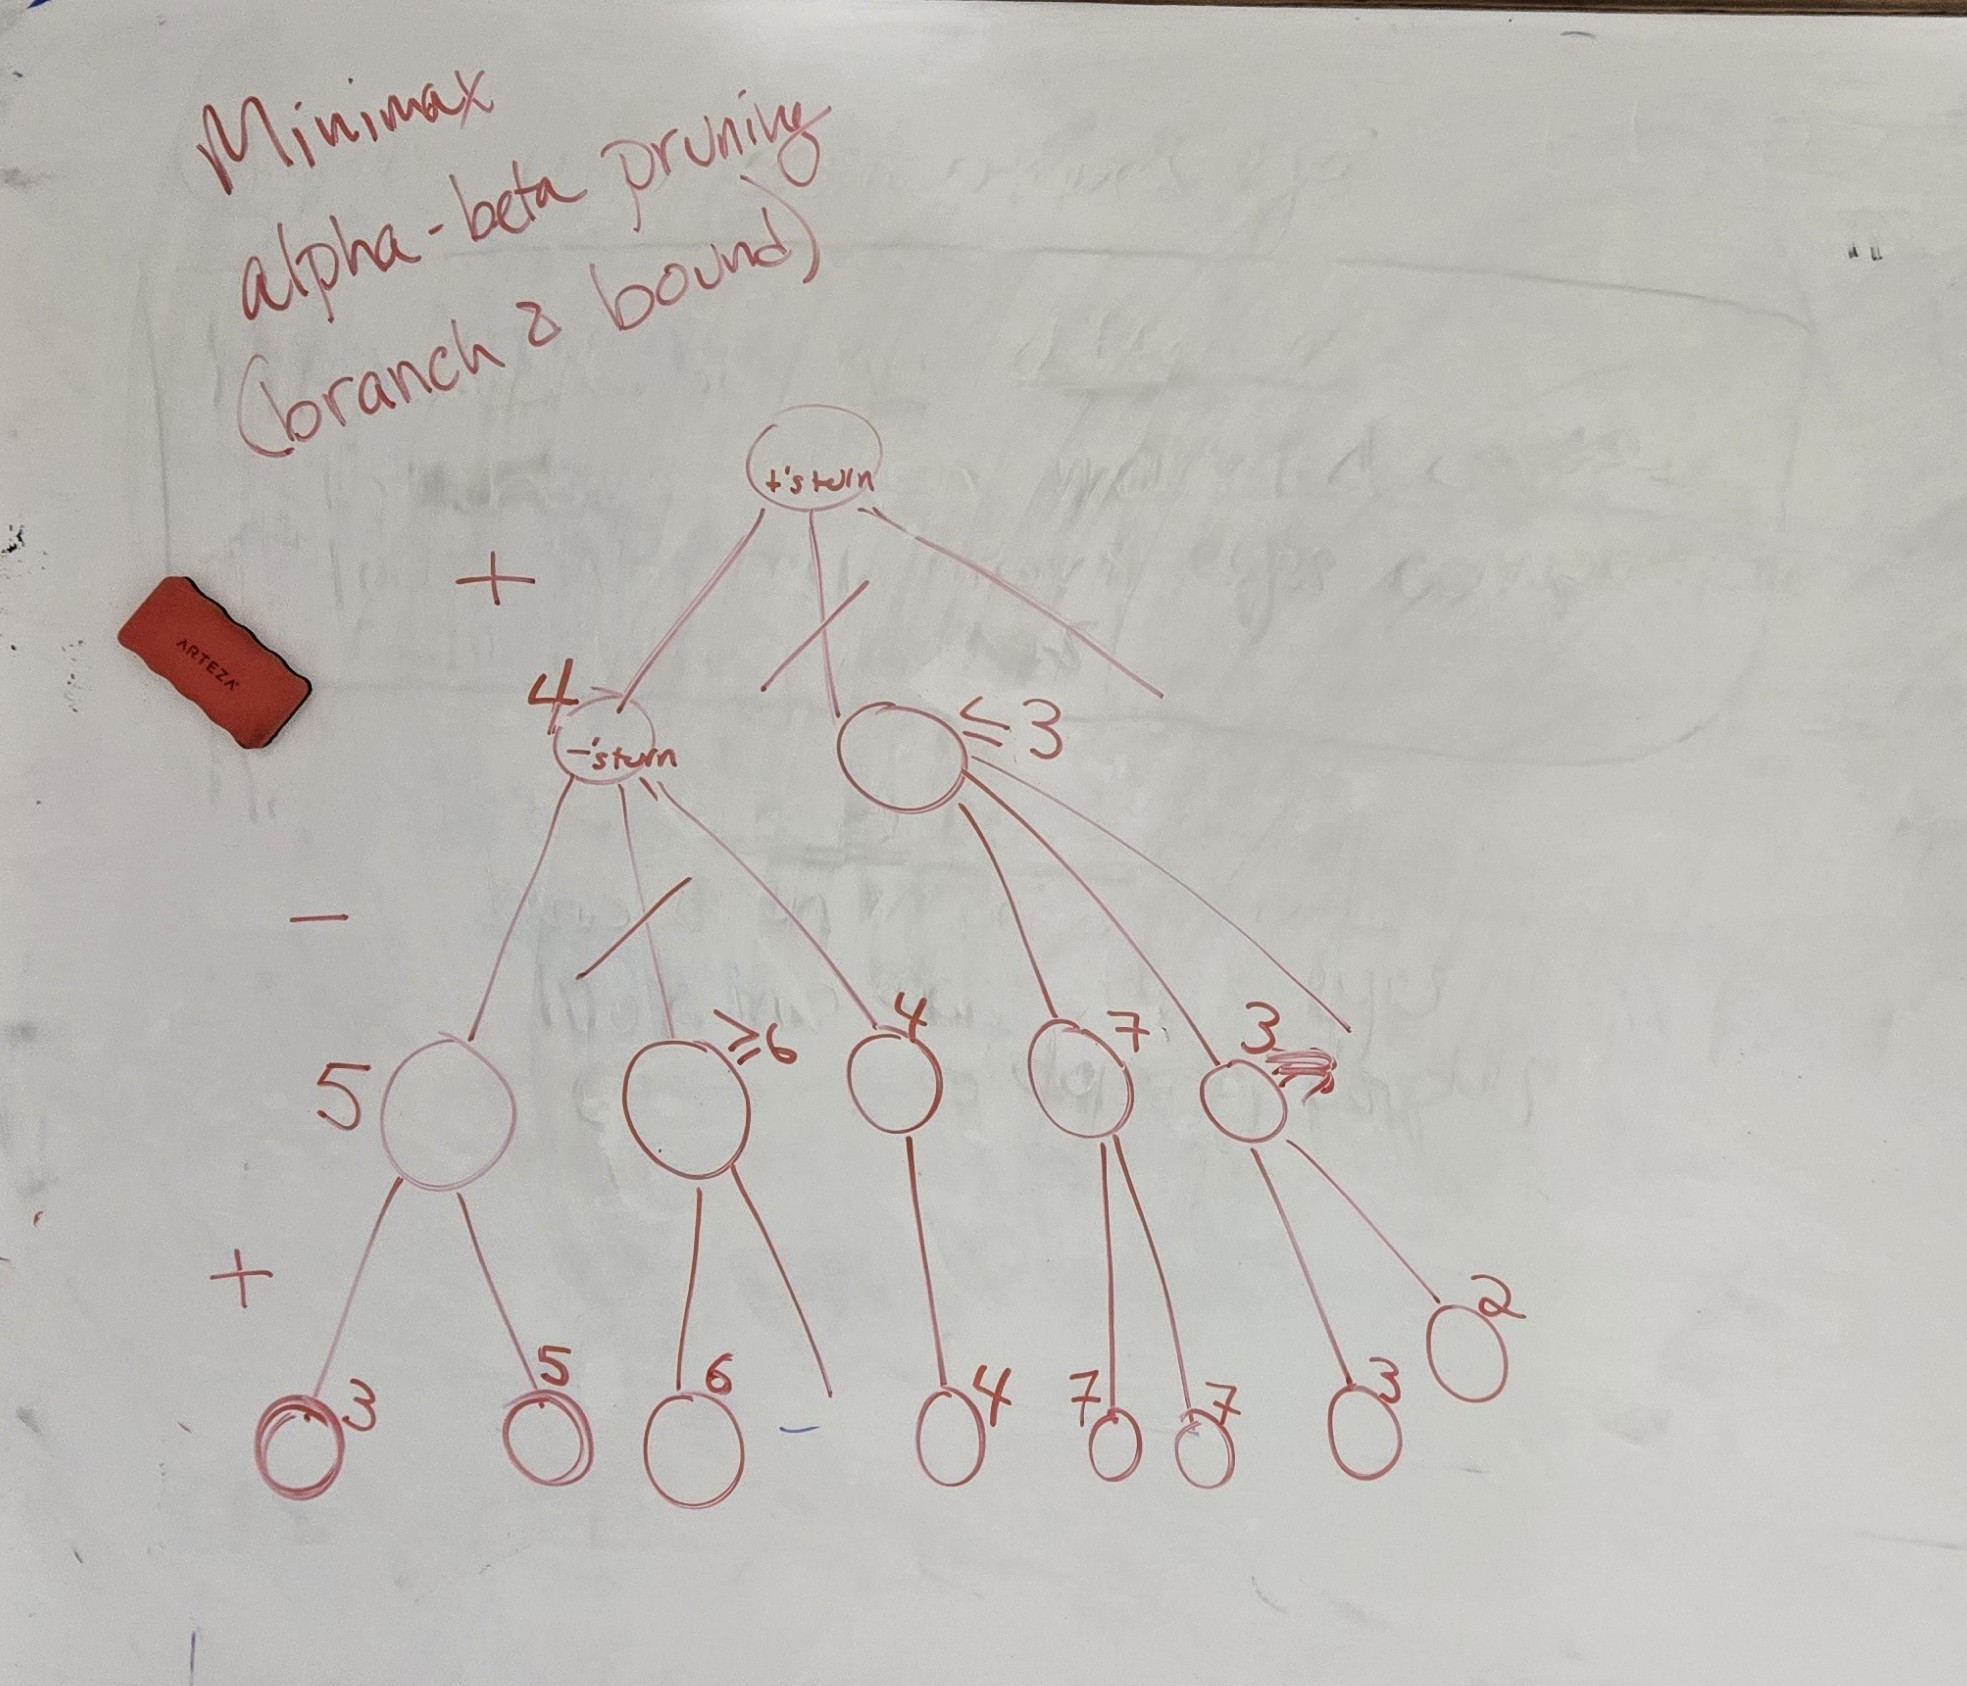 Minimax
alpha-beta pruning
(branch & bound)
+'s turn
+
ARTEZA
4
≤3
-'s turn
−
5
≥6
4
7
3
+
3
5
6
4
7
7
3
2